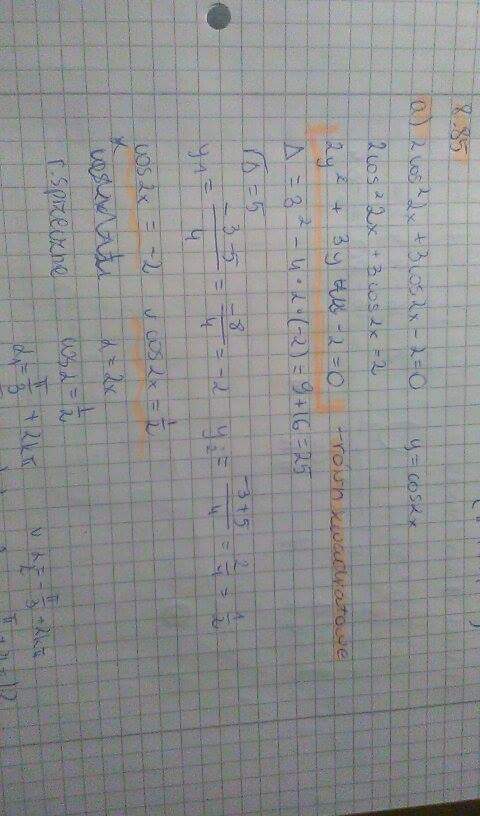 8.85
a) 2cos²2x + 3cos2x - 2 = 0    y = cos2x
2cos²2x + 3cos2x = 2
2y² + 3y - 2 = 0    - równ kwadratowe
Δ = 3² - 4·2·(-2) = 9 + 16 = 25
√Δ = 5
y₁ = (-3-5)/4 = -8/4 = -2    y₂ = (-3+5)/4 = 2/4 = 1/2
cos2x = -2    v cos2x = 1/2
α = 2x
r. sprzeczne    cosα = 1/2
α₁ = π/3 + 2kπ    v α₂ = -π/3 + 2kπ